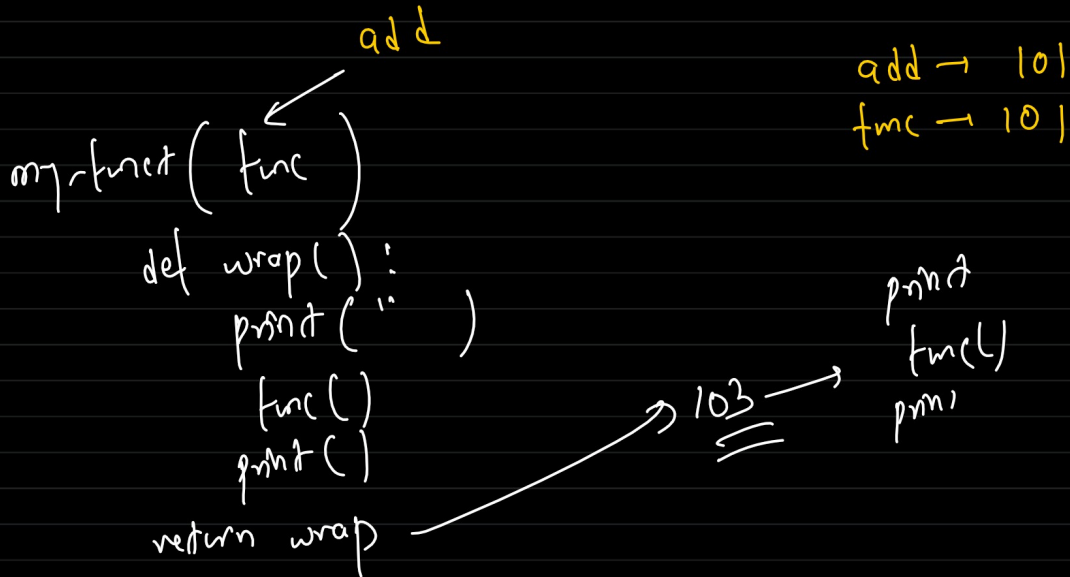 add
add → 101
func → 101
my-funct ( func )
def wrap ( ) :
print ( " " )
func ( )
print ( )
return wrap
103
print
func( )
prin